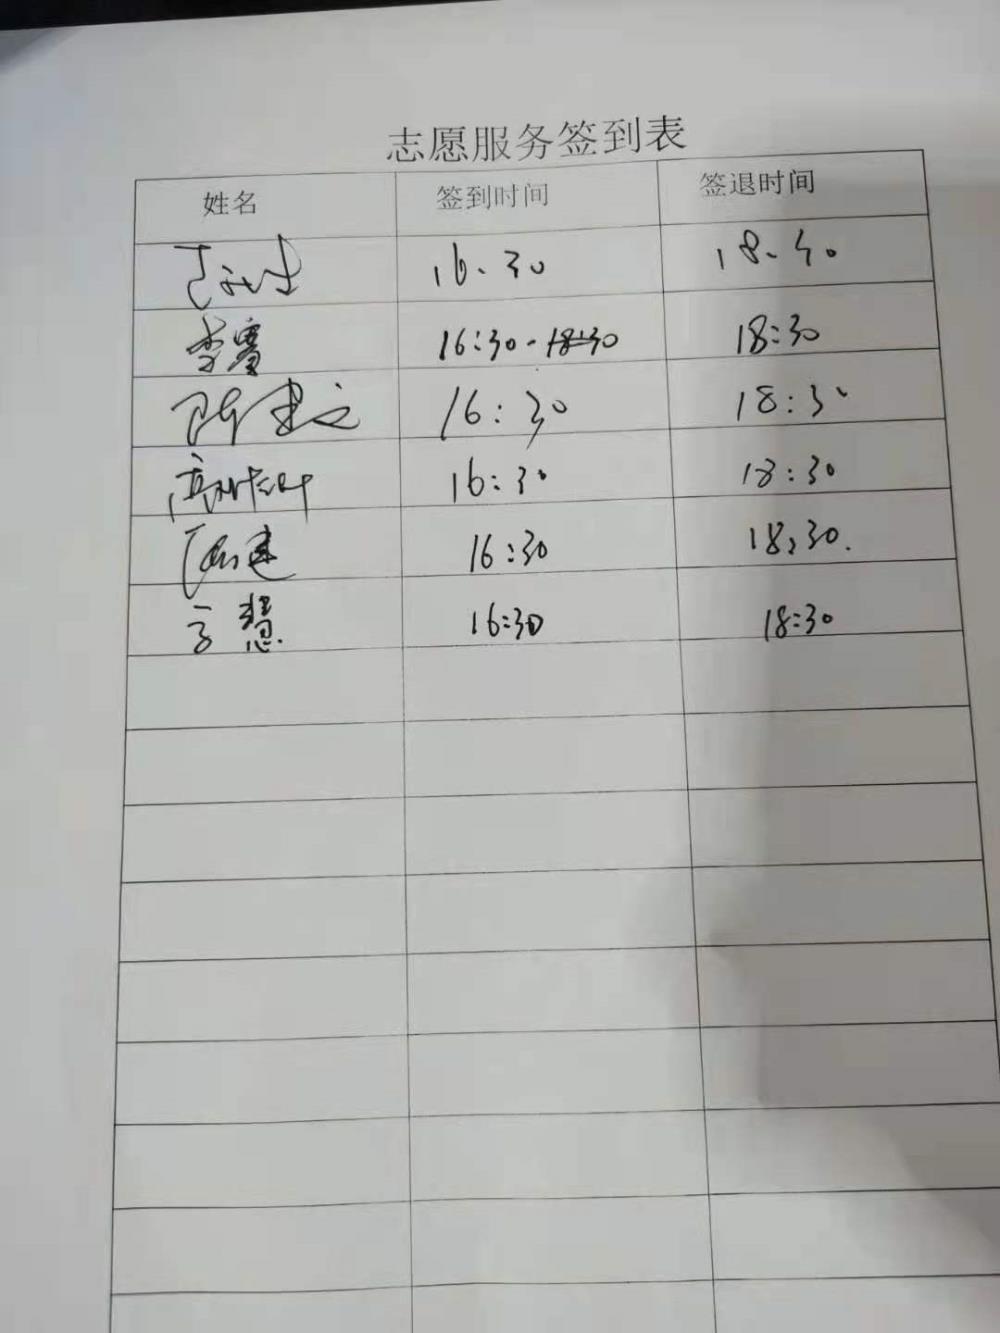 志愿服务签到表
姓名 签到时间 签退时间
16.30 18.40
李赛 16:30-18:30 18:30
陈建文 16:30 18:30
16:30 18:30
建 16:30 18:30.
方慧 16:30 18:30